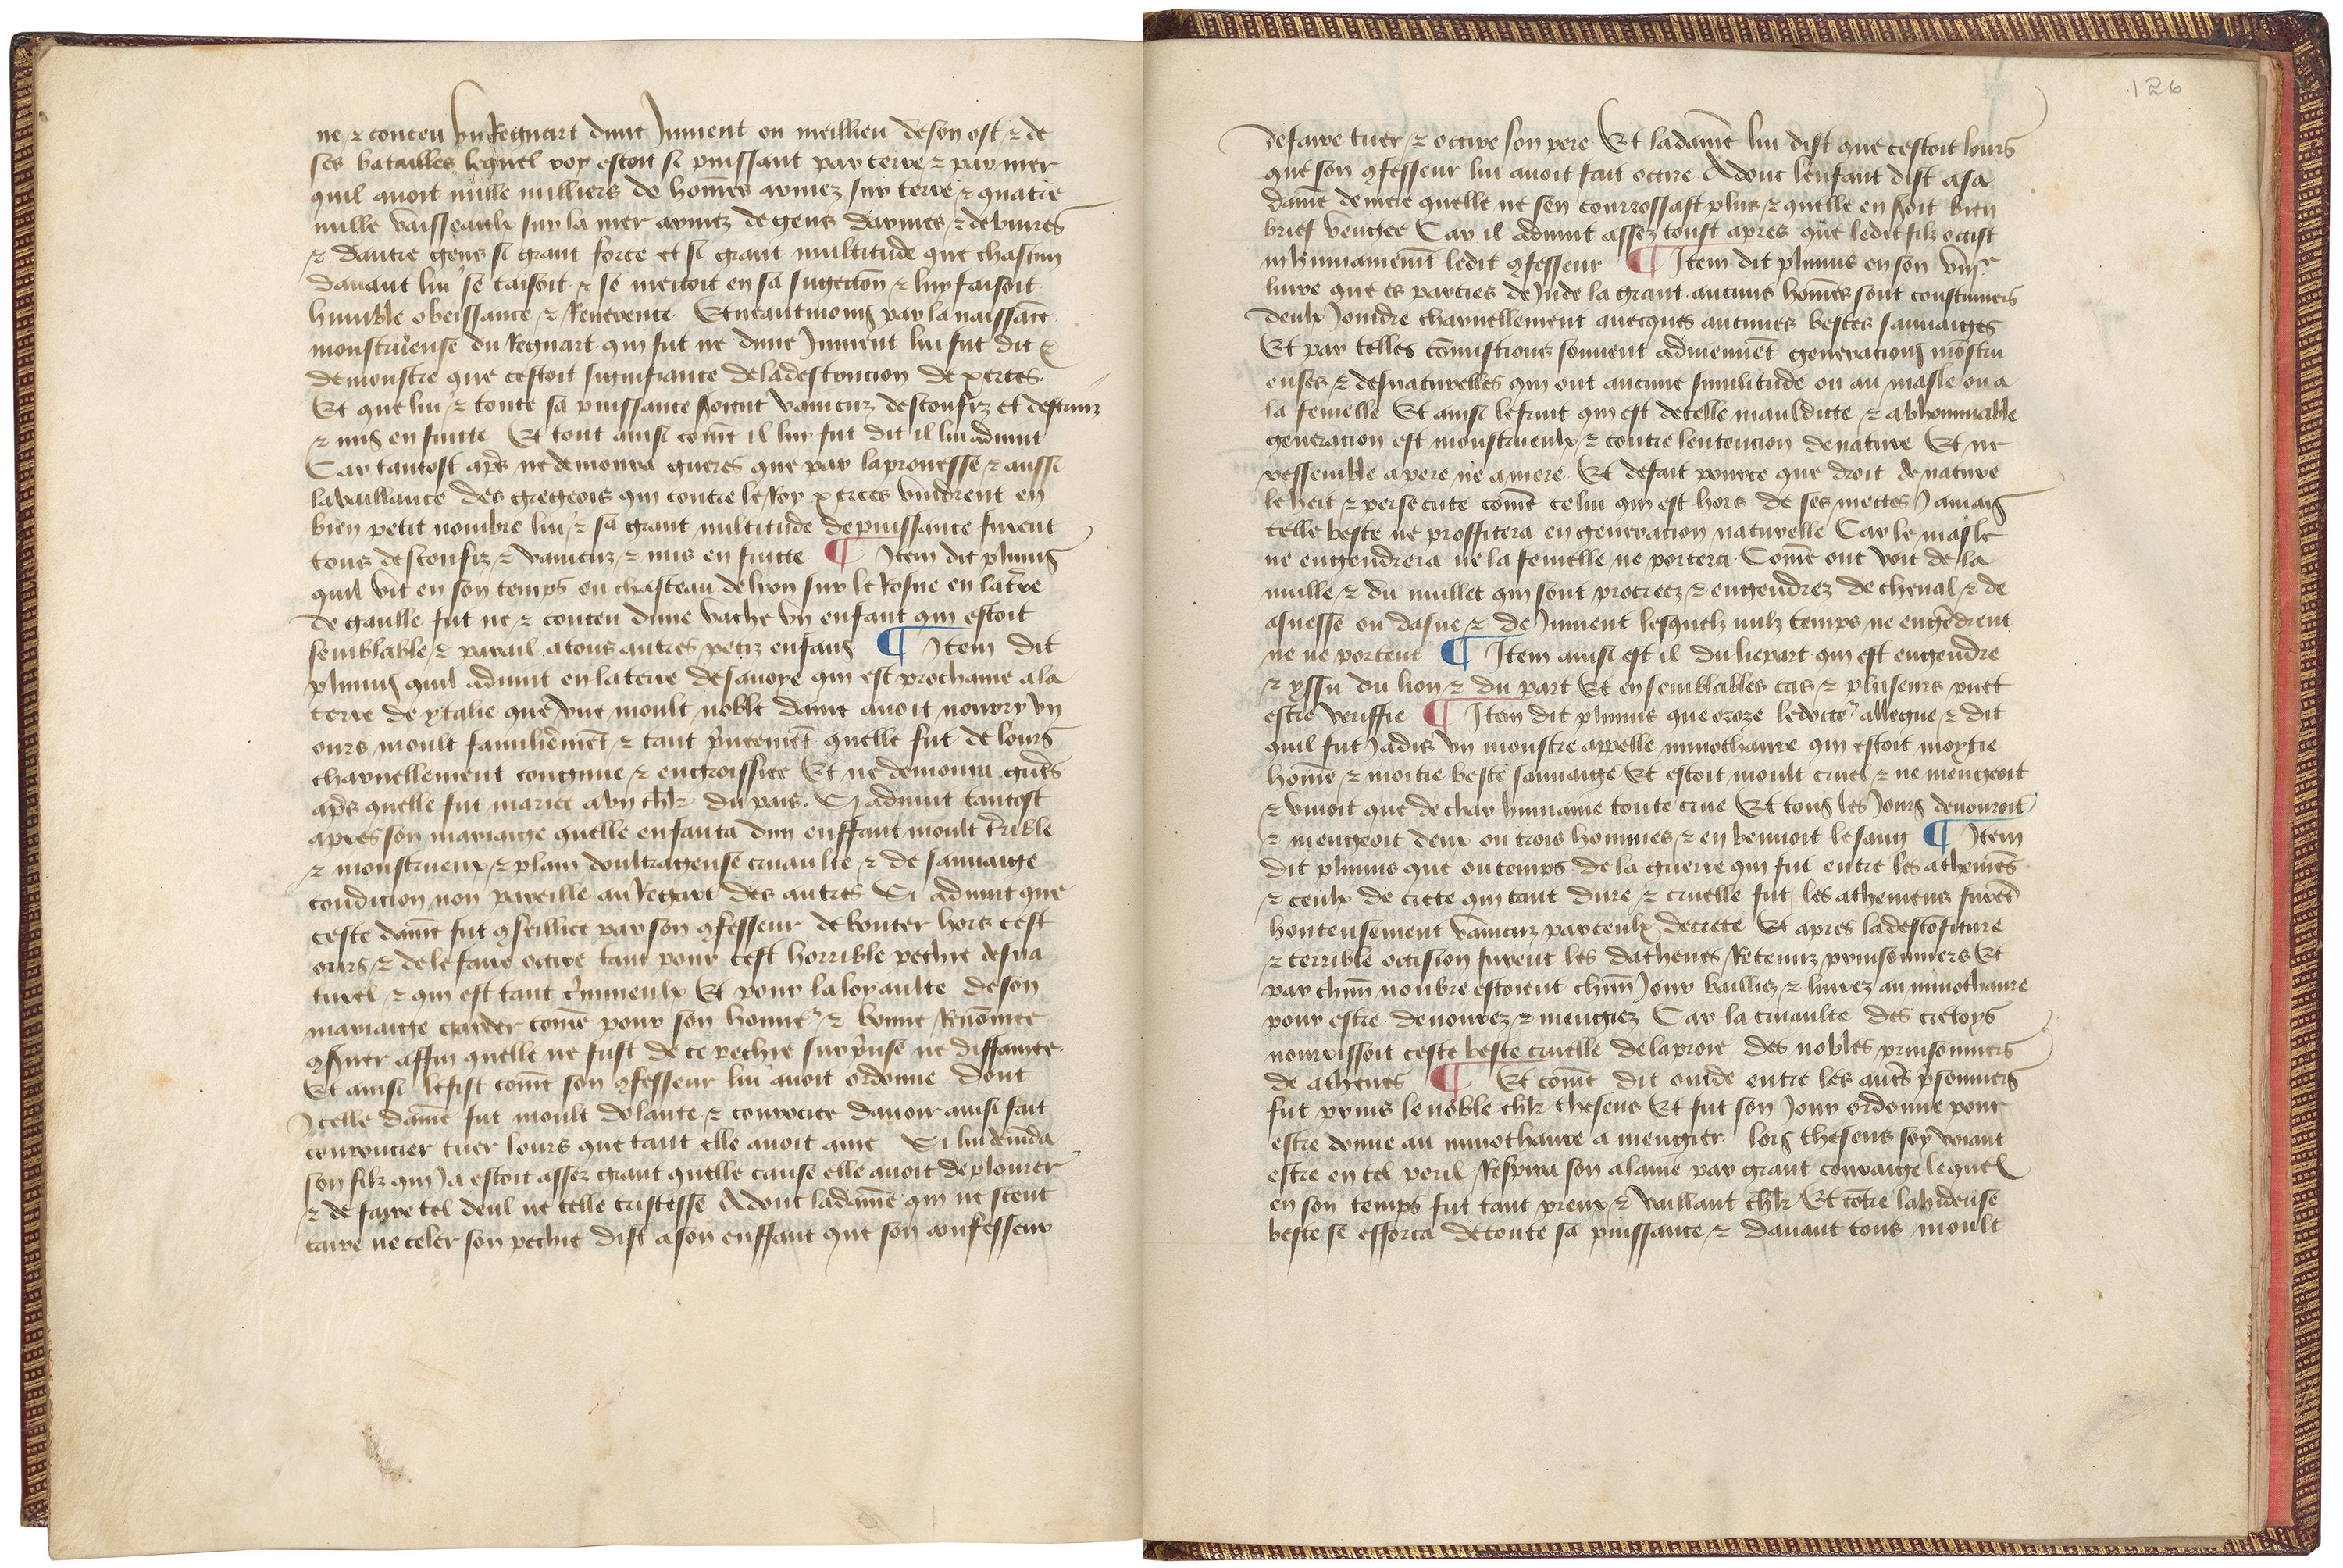 ne ⁊ conceu vn Regnart dune Jument ou meillieu de son ost ⁊ de
ses batailles lequel roy estoit si puissant par terre ⁊ par mer
quil auoit mille milliers de hom̄es armez sur terre ⁊ quatre
mille vaisseaulx sur la mer armez de gens darmes ⁊ de viures
⁊ dautre gens si grant force et si grant multitude que chascun
dauant lui se taisoit ⁊ se mectoit en sa subgection ⁊ luy faisoit
humble obeissance ⁊ Reuerence Et neantmoins par la naissāce
monstrueuse du Regnart qui fut ne dune Jument lui fut dit ⁊
demonstre que cestoit signifiance de la destrucion de xerces.
Et que lui ⁊ toute sa puissance soient vaincuz desconfiz et destruiz
⁊ mis en fuitte Et tout ainsi com̄e il luy fut dit il lui aduint
Car tantost ap̄s ne demoura gueres que par la prouesse ⁊ aussi
la vaillance des gregeois qui contre le Roy xerces vindrent en
bien petit nombre lui ⁊ sa grant multitude de puissance furent
tous desconfiz ⁊ vaincuz ⁊ mis en fuitte ¶ Item dit plinius
quil vit en son temps ou chasteau de lyon sur le Rosne en la t̄re
de gaulle fut ne ⁊ conceu dune vache vn enfant qui estoit
semblable ⁊ parail a tous autres petiz enfans ¶ Item dit
plinius quil aduint en la terre de sauoye qui est prochaine a la
terre de ytalie que vne moult noble dame auoit nourry vn
ours moult familierem̄t ⁊ tant priueemēt quelle fut de lours
charnellement congnue ⁊ engroissiee Et ne demoura gueres
ap̄s quelle fut mariee a vn chlr̄ du pais. Si aduint tantost
apres son mariaige quelle enfanta dun enffant moult t̄rible
⁊ monstrueux ⁊ plain doultrageuse cruaulte ⁊ de sauuaige
condicion non pareille au Regart des autres Si aduint que
ceste dame fut ꝯseilliee par son ꝯfesseur de bouter hors cest
ours ⁊ de le faire occire tant pour cest horrible pechie desna
turel ⁊ qui est tant crimineulx Et pour la loyaulte de son
mariaige garder com̄e pour son honneur ⁊ bonne Renōmee
ꝯseruer affin quelle ne fust de ce pechie surprinse ne diffamee.
Et ainsi le fist com̄e son ꝯfesseur lui auoit ordonne dont
Jcelle dame fut moult dolante ⁊ courocee dauoir ainsi fait
tuer lours que tant elle auoit ame Si lui demāda
son filz qui Ja estoit assez grant quelle cause elle auoit de plourer
⁊ de faire tel deul ne telle tristesse Adont la dame qui ne sceut
taire ne celer son pechie dist a son enffant que son confesseur
126
de faire tuer ⁊ occire son pere Et la dame lui dist que cestoit lours
que son ꝯfesseur lui auoit fait occire Adonc lenfant dist a sa
dame de mere quelle ne sen courrossast plus ⁊ quelle en soit bien
brief vengee Car il aduint assez toust apres que ledit filz occist
inhumainem̄t ledit ꝯfesseur ¶ Item dit plinius en son
liure que es parties de Jnde la grant aucuns hom̄es sont coustumiers
deulx Joindre charnellement auecques aucunes bestes sauuaiges
Et par telles cōmistions souuent aduiennent generacions mōstru
euses ⁊ desnaturelles qui ont aucune similitude ou au masle ou a
la femelle Et ainsi le fruit qui est de telle mauldicte ⁊ abhominable
generacion est monstrueulx ⁊ contre lentencion de nature Et ne
ressemble a pere ne a mere Et de fait pource que droit de nature
le heit ⁊ persecute com̄e celui qui est hors de ses mettes Jamais
telle beste ne proffitera en generacion naturelle Car le masle
ne engendrera ne la femelle ne portera. Com̄e ont voit de la
mulle ⁊ du mullet qui sont procreez ⁊ engendrez de cheual ⁊ de
asnesse ou dasne ⁊ de Jument lesquelz nulz temps ne engēdrent
ne ne portent ¶ Item ainsi est il du liepart qui est engendre
⁊ yssu du lion ⁊ du part Et en semblables cas ⁊ pluseurs puet
estre veriffie ¶ Item dit plinius que ledocteur allegue ⁊ dit
quil fut Jadis vn monstre appelle minothaure qui estoit moytie
hom̄e ⁊ moitie beste sauuaige Et estoit moult cruel ⁊ ne mengeoit
⁊ viuoit que de char humaine toute crue Et tous les Jours deuouroit
⁊ mengeoit deux ou trois hommes ⁊ en beuuoit le sang ¶ Item
dit plinius que ou temps de la guerre qui fut entre les atheniēs
⁊ ceulx de crete qui tant dure ⁊ cruelle fut les atheniens furēt
honteusement vaincuz par ceulx de crete Et apres la descōfiture
⁊ terrible occision furent les dathenes Retenuz prinsonniers Et
par chūn nombre estoient chūn Jour bailliez ⁊ liurez au minothaure
pour estre deuourez ⁊ mengiez Car la cruaulte des cretoys
nourrissoit ceste beste cruelle de la proie des nobles prinsonniers
de athenes ¶ Et com̄e dit ouide entre les autr̄s p̄sonniers
fut prins le noble chlr̄ theseus Et fut son Jour ordonne pour
estre donne au minothaure a mengier lors theseus soy voiant
estre en tel peril Respira son alaine par grant couraige lequel
en son temps fut tant preux ⁊ vaillant chlr̄ Et cōtre la hideuse
beste se efforca de toute sa puissance ⁊ dauant tous moult